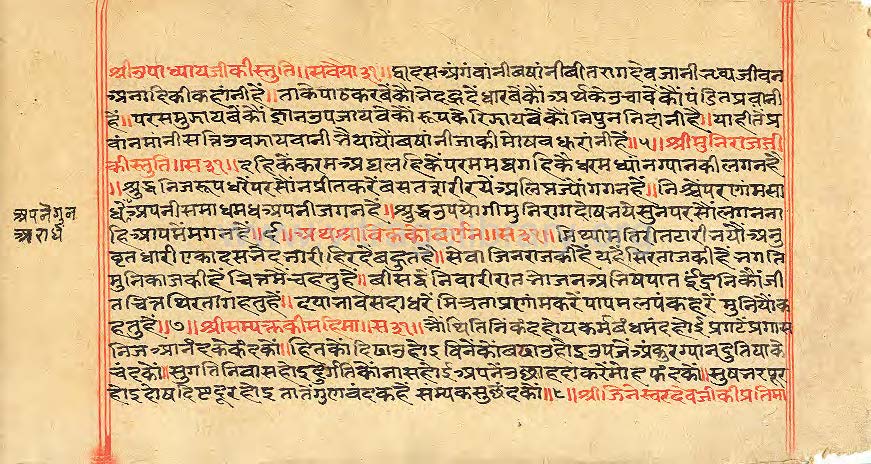 श्रीउपाध्यायजीकीस्तुति॥सवैया३१॥द्वादसअंगवांनीबषांनीबीतरागदेवजानीभव्यजीवन
अनादिकीकहांनीहैं॥ताकेपाठकरबेकौंभेदहृदैंधारबेकौंअर्थकेउचावेकौंपंडितप्रवानी
हैं॥परसमुजायबेकौंज्ञानउपजायवेकौंरूपकेरिजायवेकौंनिपुननिदांनीहै॥याहीतैंप्र
वांनमानीसतिउवजायवानीअैयायौंबषांनीजाकीमोषबधूरांनीहैं॥५॥श्रीमुनिराजजी
कीस्तुति॥स३१॥दहिकेंकरमअघलहिकेंपरममघगहिकैधरमध्यांनग्यानकीलगनहै
॥श्रुद्धनिजरूपधरेंपरसौंनप्रीतकरेंबसतशरीरपेंअलिप्तज्योंगगनहैं॥निश्चैपरणामसा
धैंअपनेगुनअराधैअपनीसमाधमधअपनीजगनहैं॥श्रुद्धउपयोगीमुनिरागदोषभयेसुनपरसौंलगनना
हिआपमेंमगनहैं॥६॥अथश्राविककौबर्णन॥स३१॥मिथ्यामतिरीतटारीभयौअनु
वृतधारीएकादसभेदभारीहिरदेंबहतुहै॥सेवाजिनराजकीहैंयहैसिरताजकीहैभगति
मुनिकाजकीहैंचित्तमैंचहतुहैं॥बीसद्वैनिवारीरातभोजनअनिषपातइंद्रनिकौंजी
तचित्तथिरतागहतुहैं॥दयाभावसदाधरेंमित्रताप्रणांमकरेंपापमलपंकहरेंमुनियौंक
हतुहैं॥७॥श्रीसम्यक्तकीमहिमा॥स३१॥भौथितिनिकंदहोयकर्मबंधमंदहोइप्रगटेंप्रगास
निजआनंदकेकंदकों॥हितकोंदिढाउहोइविनैकौंबढाउहोइउपजैंअंकुरग्यानदुतियाके
चंदकों॥सुगतिनिवासहोइदुर्गतिकोनासहोइअपनेउछाहदाहकरेंमोहफंदकों॥सुषभरपूर
होइदोषदिष्टदूरहोइतातेंगुणबृंदकहैंसम्यकसुछंदकों॥८॥श्रीजिनेस्वरदेवजीकीप्रतिमा
अपनेगुन
अराधै